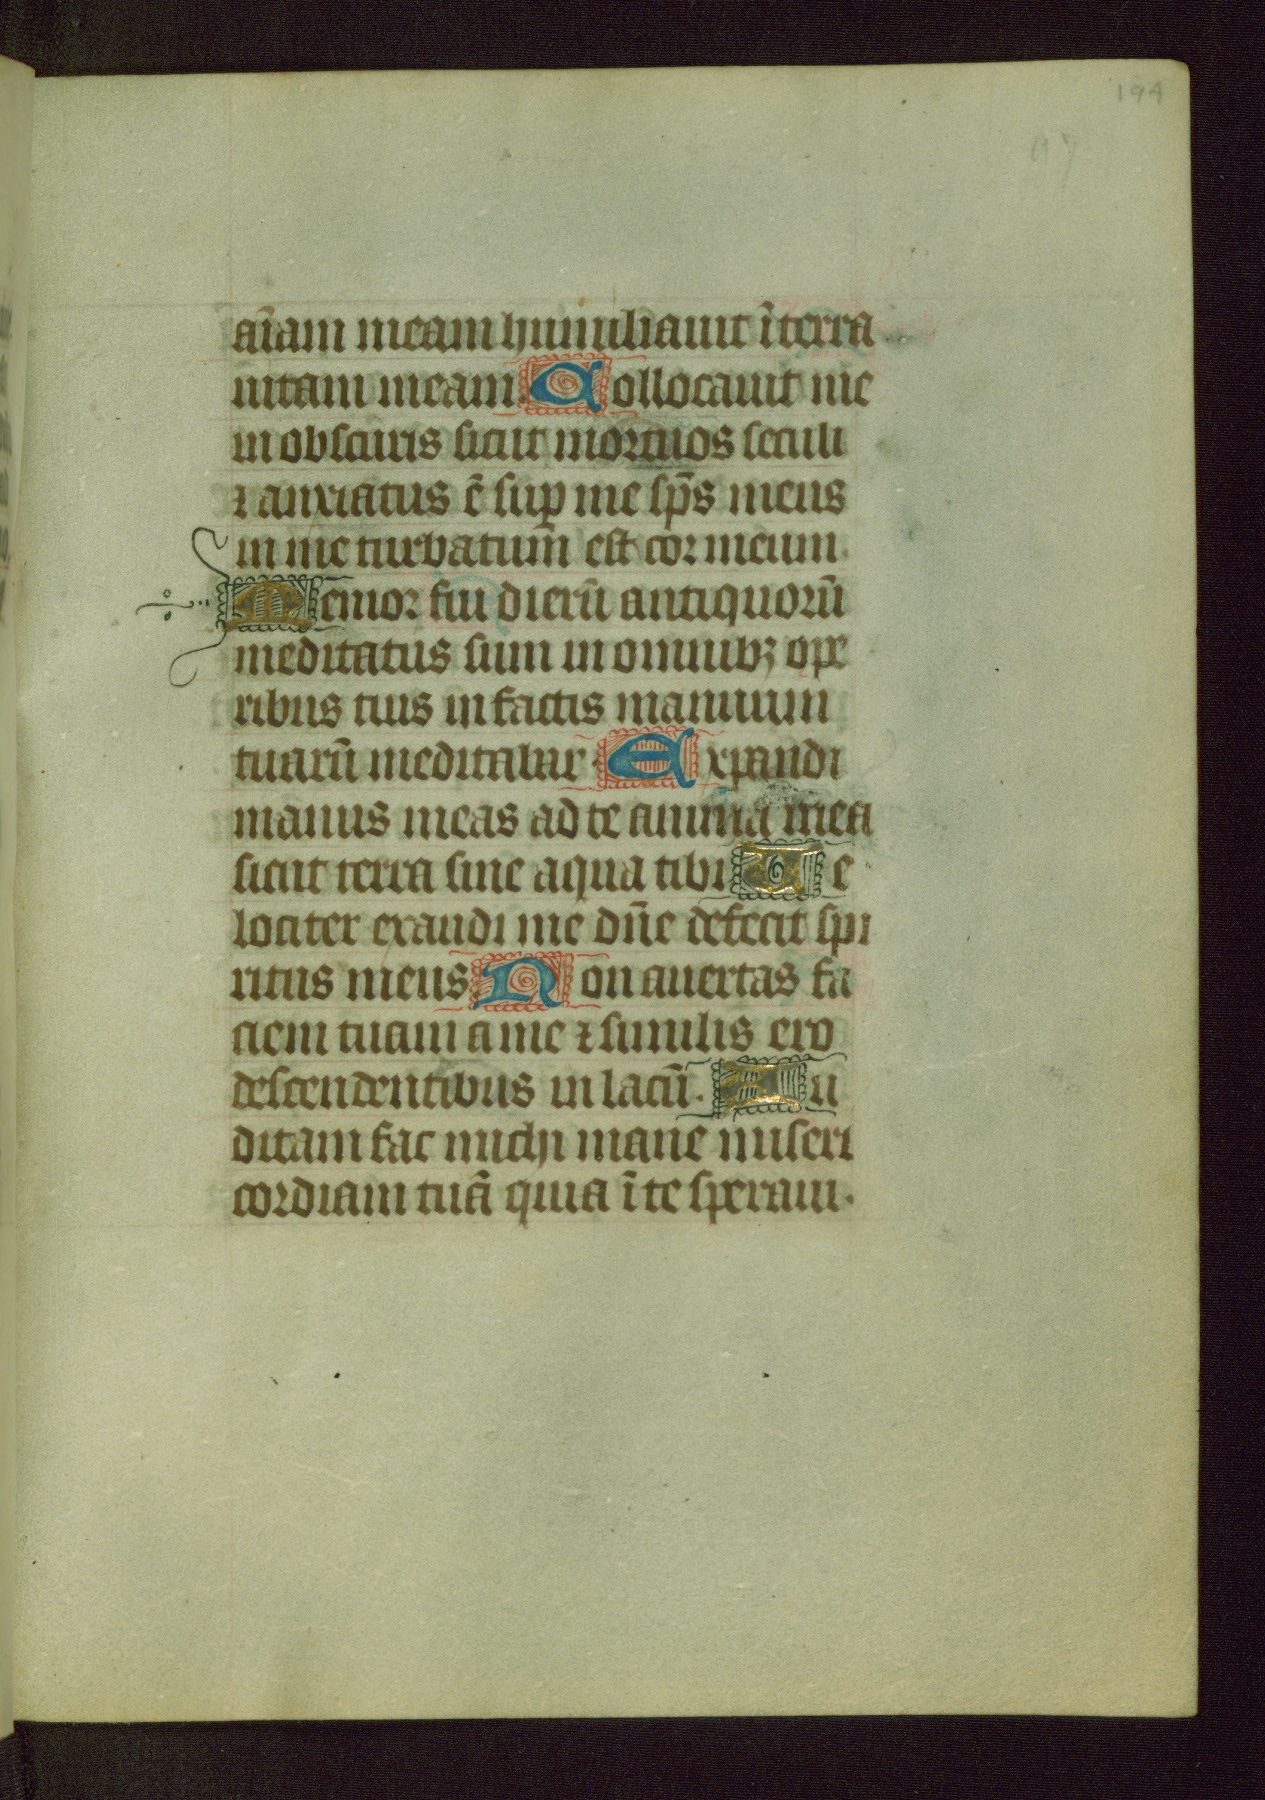 194
aīam meam humiliauit ī terra
uitam meam Collocauit me
in obscuris sicut mortuos seculi
⁊ anxiatus ē sup me sp̄s meus
in me turbatum̄ est cor meum.
Memor fui dierū antiquorū
meditatus sum in omnibꝫ ope
ribus tuis in factis manuum
tuarū meditabar Expandi
manus meas ad te anima mea
sicut terra sine aqua tibi Ue
lociter exaudi me dn̄e defecit spi
ritus meus Non auertas fa
ciem tuam a me ⁊ similis ero
descendentibus in lacū. Au
ditam fac michi mane miseri
cordiam tuā quia ī te speraui.